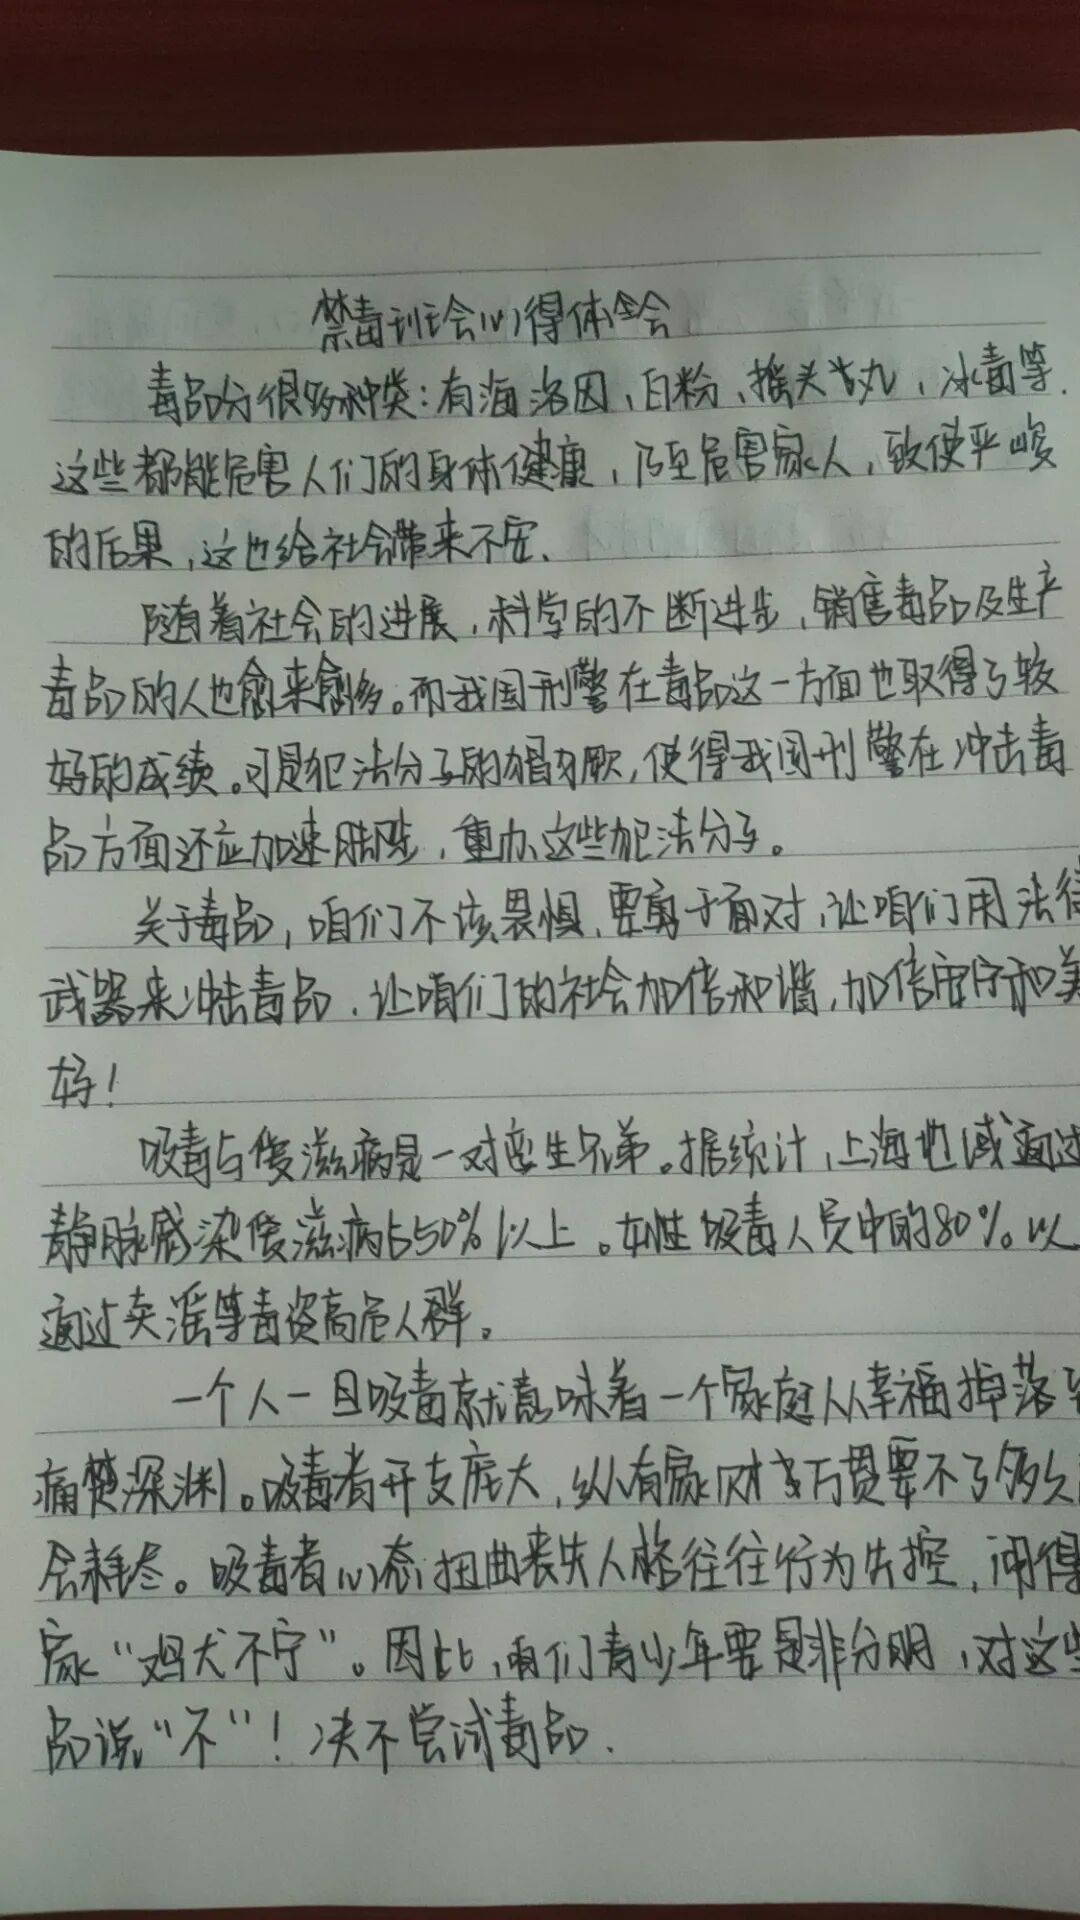 禁毒班会心得体会
毒品分很多种类:有海洛因、白粉、摇头丸,冰毒等.
这些都能危害人们的身体健康,乃至危害家人,致使严峻
的后果,这也给社会带来不安.
随着社会的进展,科学的不断进步,销售毒品及生产
毒品的人也愈来愈多。而我国刑警在毒品这一方面也取得了较
好的成绩。可是犯法分子的猖厥,使得我国刑警在冲击毒
品方面还应加速脚步,重办这些犯法分子。
关于毒品,咱们不该畏惧,要勇于面对,让咱们用法律
武器来冲击毒品,让咱们的社会加倍和谐,加倍安宁和美
好!
吸毒与傻滋病是一对孪生兄弟。据统计,上海地域通过
静脉感染傻滋病占50%以上。女性吸毒人员中的80%以
通过卖淫等毒资高危人群。
一个人一旦吸毒就意味着一个家庭从幸福掉落
痛楚深渊。吸毒者开支庞大,纵有家财万贯要不了多久
会耗尽。吸毒者心态扭曲丧失人格往往行为失控,闹得
家“鸡犬不宁”。因此,咱们青少年要是非分明,对这些
品说“不”!决不尝试毒品.